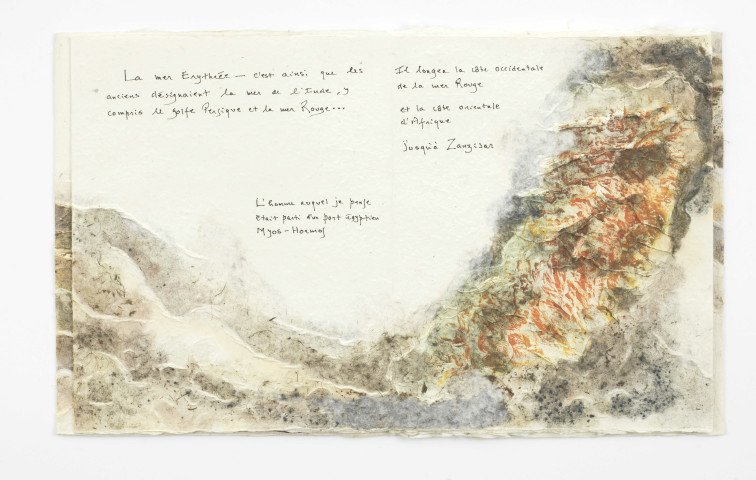 La mer Erythrée – c'est ainsi que les
anciens désignaient la mer de l'Inde, y
compris le golfe Persique et la mer Rouge...
L'homme auquel je pense
était parti d'un port égyptien
Myos-Hormos
Il longea la côte occidentale
de la mer Rouge
et la côte orientale
d'Afrique
jusqu'à Zanzibar